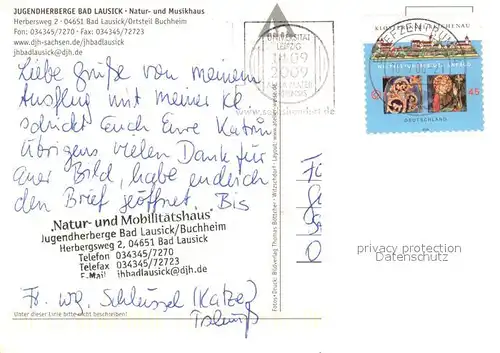 JUGENDHERBERGE BAD LAUSICK · Natur- und Musikhaus
Herbersweg 2 · 04651 Bad Lausick/Ortsteil Buchheim
Fon: 034345/7270 · Fax: 034345/72723
www.djh-sachsen.de/jhbadlausick
badlausick@djh.de
Liebe Grüße von meinem
Ausflug mit meiner Kl.
schickt Euch Eure Katrin
Übrigens vielen Dank für
Euer Bild, habe endlich
den Brief geöffnet. Bis
„Natur- und Mobilitätshaus"
Jugendherberge Bad Lausick/Buchheim
Herbergsweg 2, 04651 Bad Lausick
Telefon 034345/7270
Telefax 034345/72723
E-Mail jhbadlausick@djh.de
Fr. wg. Schlüssel (Katze)
Tschüß
Unter dieser Linie bitte nicht beschreiben!
Fotos+Druck: Bildverlag Thomas Böttcher · Witzschdorf · Layout:
UNIVERSITÄT
LEIPZIG
09
2009
KLOSTERINSEL REICHENAU
45
DEUTSCHLAND
privacy protection
Datenschutz